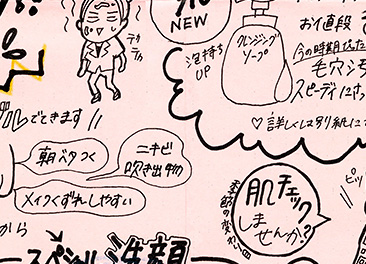 NEW
お値段
テカ
テカ
泡持ち
UP
クレンジング
ソープ
今の時期
毛穴
スピーディに
♡詳しくは別紙に
でできます
朝ベタつく
ニキビ
吹き出物
メイクくずれしやすい
から
肌チェック
しませんか?
季節の変わり目
スペシャル洗顔